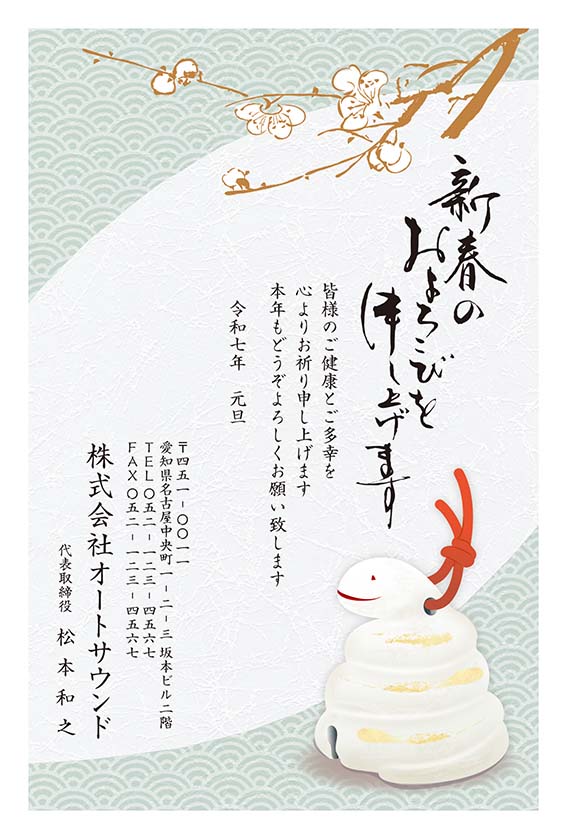 新春の
およろこびを
申し上げます
皆様のご健康とご多幸を
心よりお祈り申し上げます
本年もどうぞよろしくお願い致します
令和七年　元旦
〒四五一-〇〇一一
愛知県名古屋中央町一-二-三 坂本ビル二階
TEL〇五二-一二三-四五六七
FAX〇五二-一二三-四五六七
株式会社オートサウンド
代表取締役　松本和之